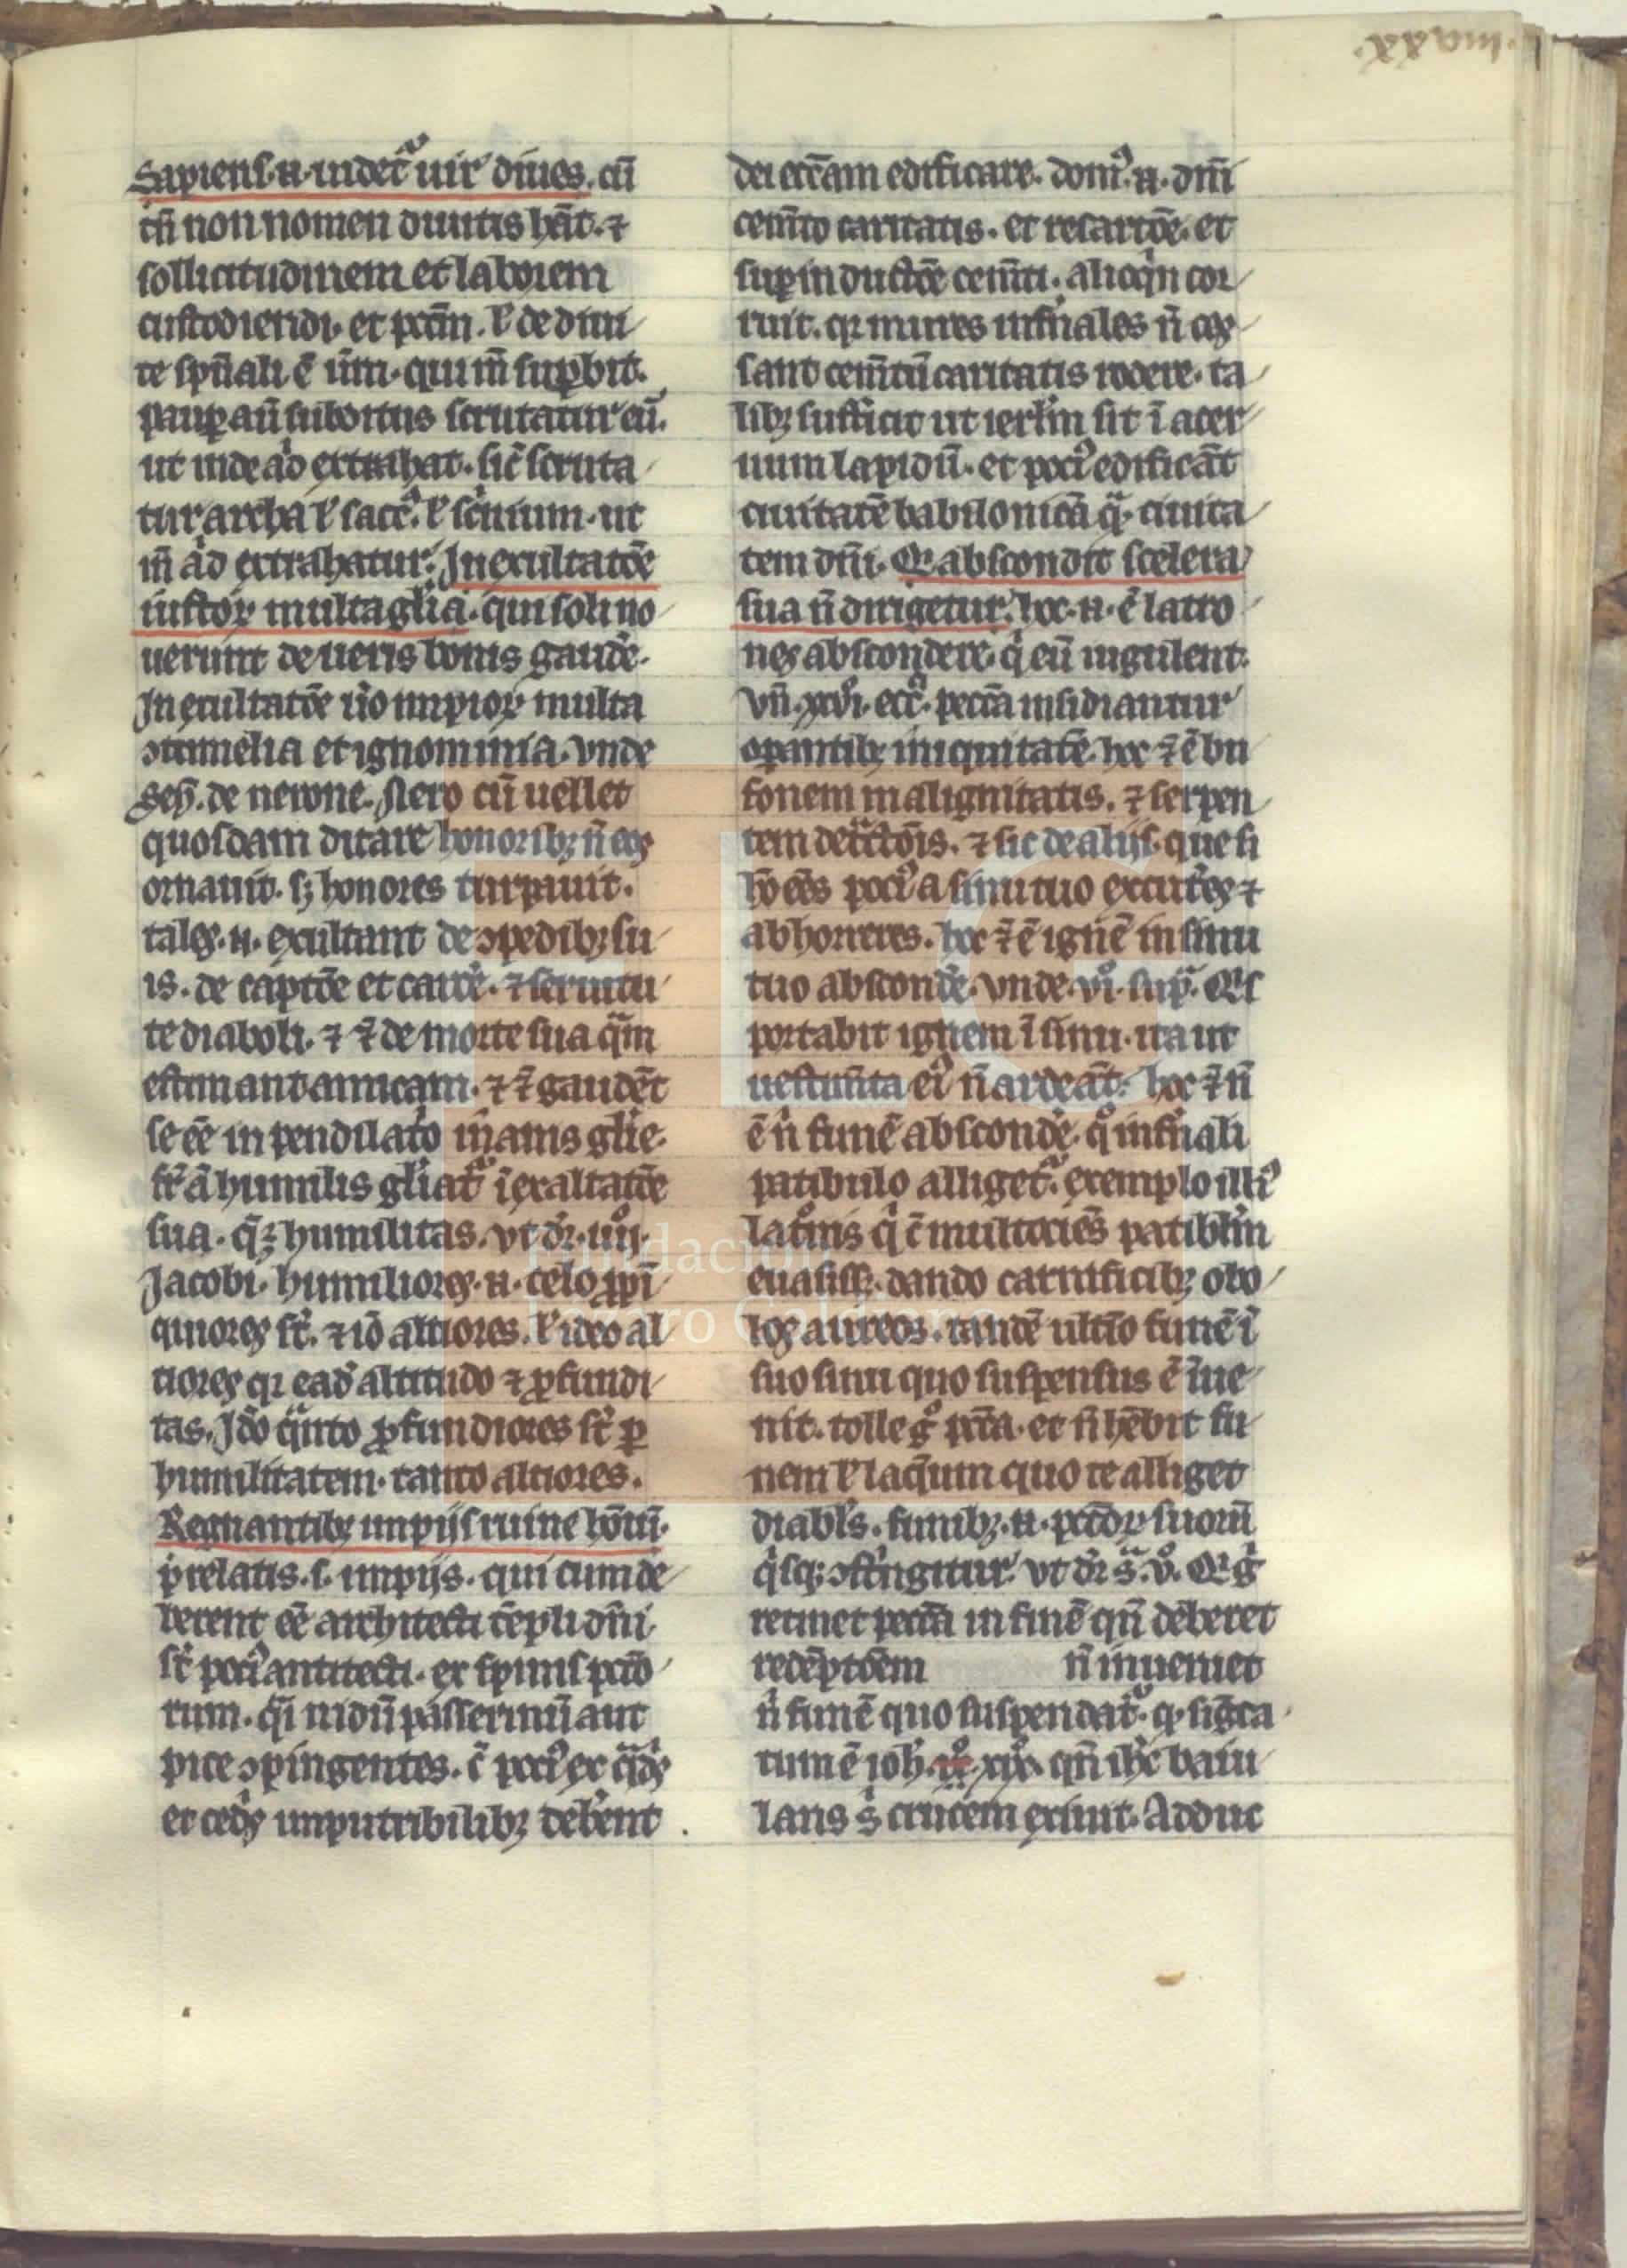 Sapiens .n. uidet᷑ uir diues. cū
tn̄ non nomen diuitis hāt. ⁊
sollicitudinem et laborem
custodiendi. et pccm̄. ł de diui
te sp̄uali. ē um̄. qui in̄ suꝑbit.
pauꝑ aū subditus scrutatur eū.
ut inde ad extrahat. sic̄ scruta
tur archa ł sacc᷒. ł scnium. ut
in̄ ad extrahatur. In exultatōe
iustoꝝ multa gl̄ia. qui soli no
uerunt de ueris bonis gaudē.
In exultatōe uo impioꝝ multa
ꝯtumelia et ignominia. vnde
seń. de nerone. Nero cū uellet
quosdam ditare honoribꝫ n̄ eos
ornauit. sꝫ honores turpauit.
tales .n. exultant de ꝯpedibꝫ su
is. de captōe et carcē. ⁊ seruitu
te diaboli. ⁊ ⁊̄ de morte sua qᵃm
estimant amicam. ⁊ ⁊̄ gaudēt
se eē in pendilato inanis glīe.
humilis gliat᷑ ī exaltatōe
sua. humilitas. vt dr̄. iiij.
Jacobi. humiliores .n. celo ꝓpī
quiores st̄. ⁊ iō altiores. ł ideo al
tiores qꝛ ead altitudo ⁊ ꝓfundi
tas. Idō qᵃnto ꝓfundiores st̄ ꝑ
humilitatem. tanto altiores.
Regnantibꝫ impijs ruine hoīm.
prelatis .s. impijs. qui cum de
berent eē architecti tēpli dn̄i
st̄ poci᷒ antitecti. ex spinis pctō
rum. qᵃi nidū passerinū aut
pice ꝯpingentes. c̄ poci᷒ ex
et cedͥs imputribilibꝫ debent
dei ecc̄am edificare. dom᷒ .n. dn̄i
cem̄to caritatis. et resartōe. et
suꝑinductōe cem̄ti. alioqn̄ cor
ruit. qꝛ mures infnales n̄ ces
sant cem̄tū caritatis rodere. ta
libꝫ sufficit ut ierlm̄ sit ī acer
uum lapidū. et poci᷒ edificāt
ciuitatē babilonicā qᵃ. ciuita
tem dn̄i. Qͥ abscondit scelera
sua n̄ dirigetur. hoc .n. ē latro
nes abscondere. qͥ eū iugulent.
Vn̄. eccͣ. peccͣta insidiantur
oꝑantibꝫ iniquitatē. hoc ⁊̄ ē bu
fonem malignitatis. ⁊ serpen
tem detͣctōis. ⁊ sic de alijs. que si
poci᷒ a sinu tuo excutes ⁊
abhorreres. hoc ⁊̄ ē ignē in sinu
tuo abscondē. vnde. vi᷒. supͣ. Qͥs
portabit ignem ī sinu. ita ut
uestim̄ta ei᷒ n̄ ardeāt. hoc ⁊̄ n̄
ē n̄ funē abscondē. qͦ infnali
patibulo alliget᷑. exemplo illi᷒
latōnis qͥ c̄ multociēs patiblm̄
euasissꝫ. dando carnificibꝫ obo
los aureos. tandē ultīo funē ī
suo sinu quo suspensus ē īue
nit. tolle gͦ pctā. et n̄ hēbit fu
nem ł laqͣum quo te alliget
diabl᷒s. funibꝫ .n. pctōꝝ suorū
qͥsqꝫ ꝯstͥngitur. vt dr̄ sͣ. v᷒. Qͥ gͦ
retinet peccͣta in finē qn̄ deberet
redēptōem n̄ inueniet
n̄ funē quo suspendat᷑. qͥ. sigͣta
tum ē ioh. xix᷒. qn̄ ihc̄ baiu
lans s crucem exiuit. Adduc